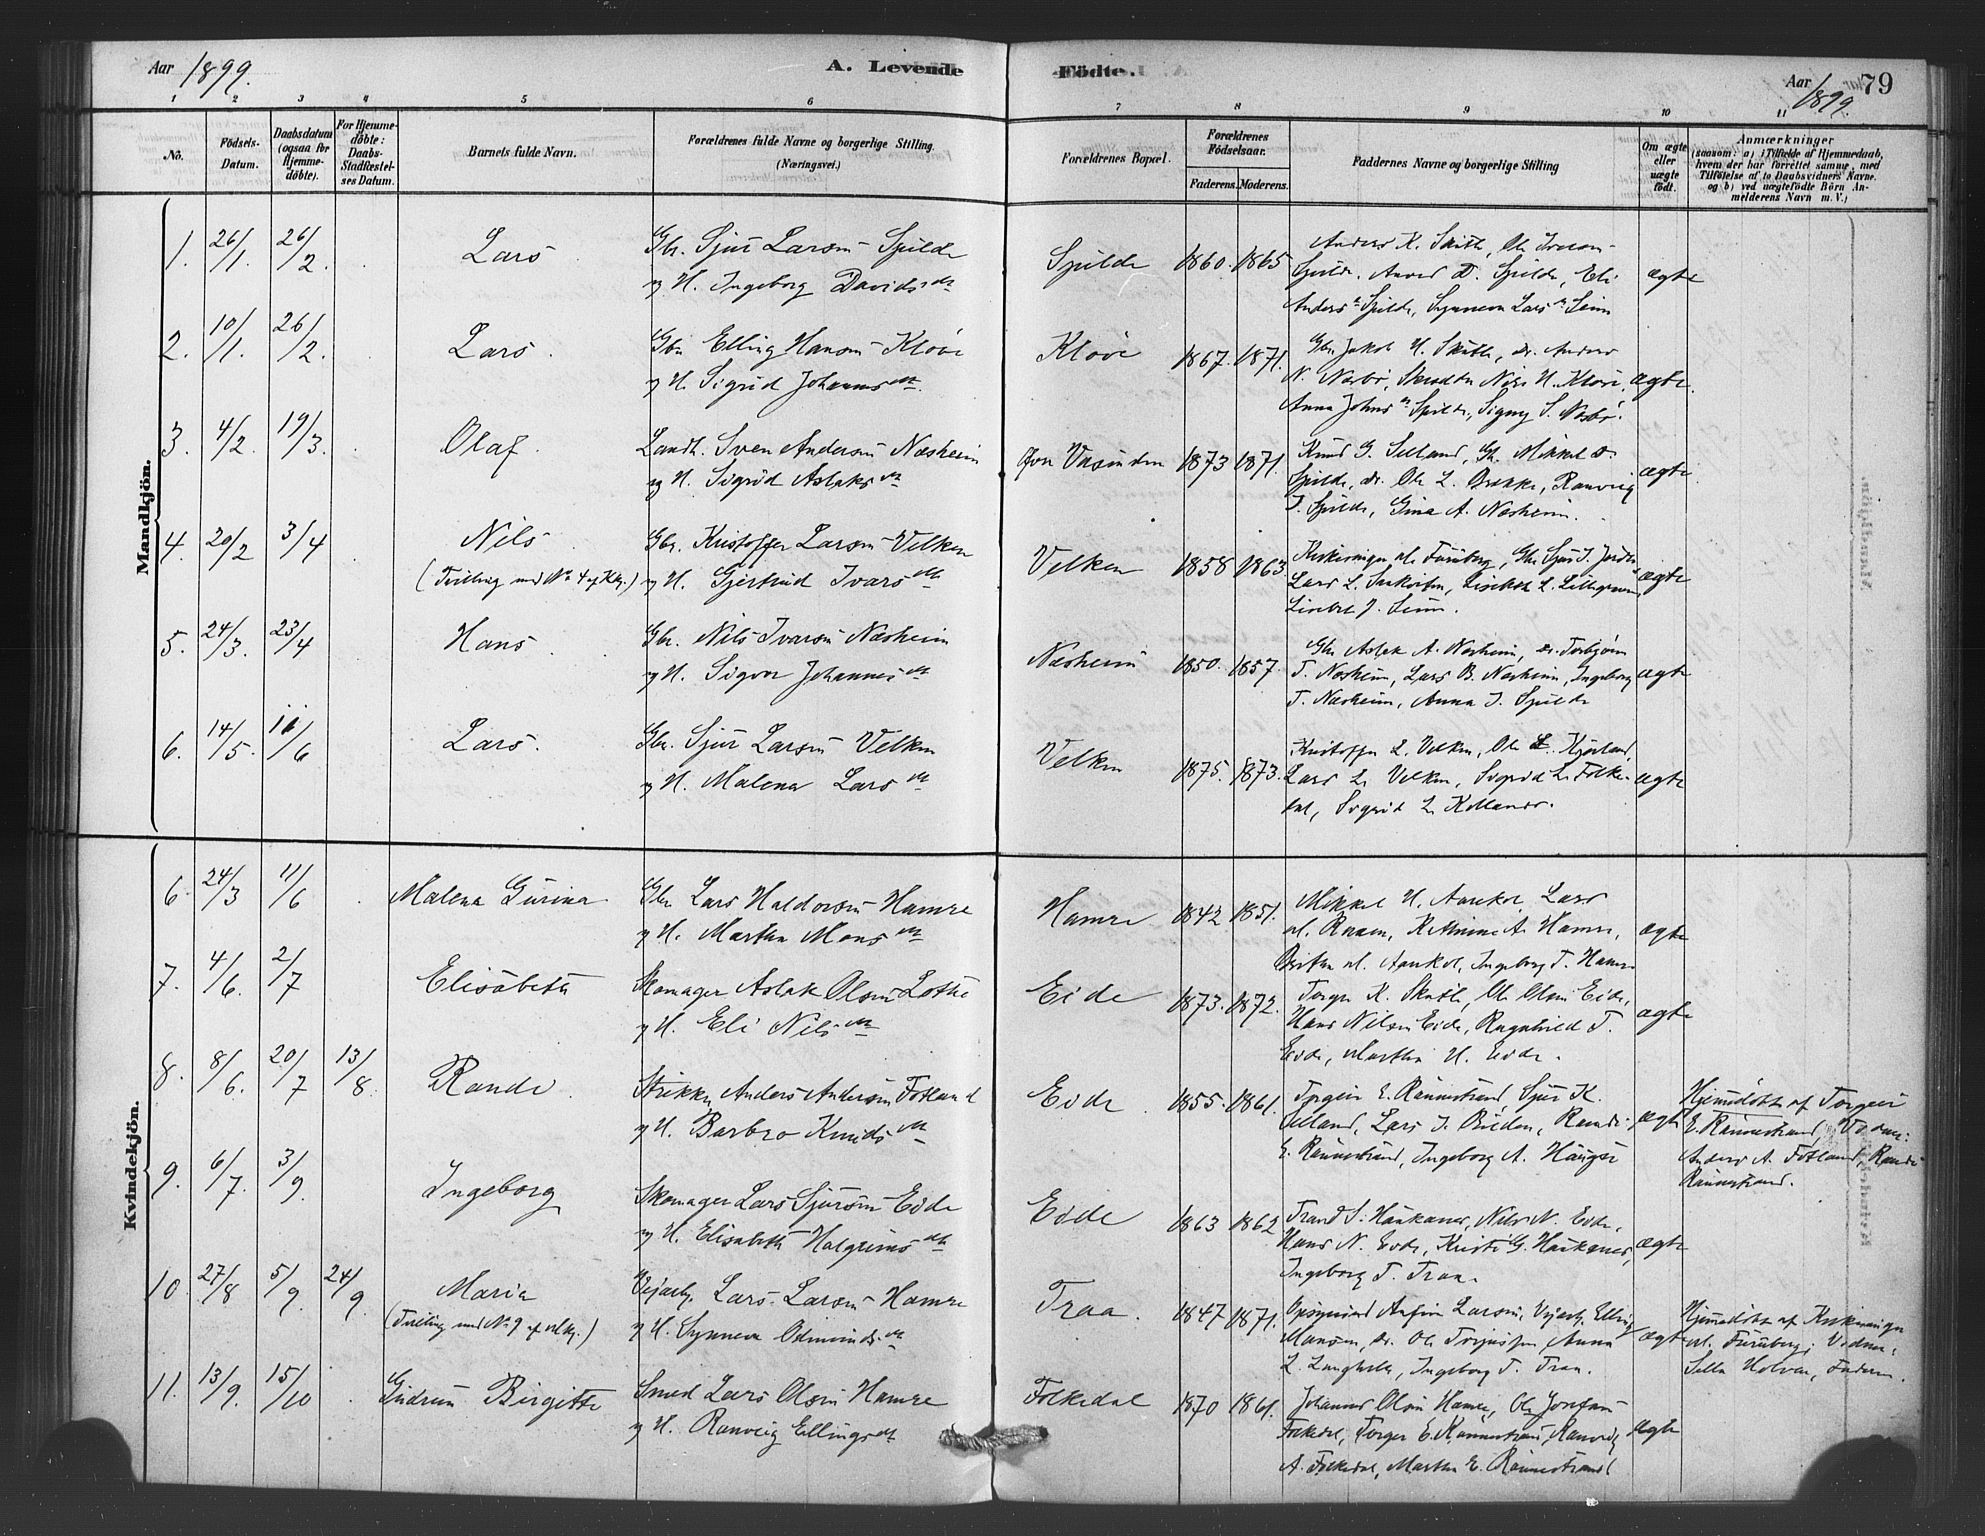 Aar 1899. A. Levende Fødte. Aar 1899. 79
1 2 3 4 5 6 7 8 9 10 11
No. Födsels-Datum. Daabsdatum (ogsaa for Hjemmedöbte). For Hjemmedöbte: Daabs-Stadfæstelses Datum. Barnets fulde Navn. Forældrenes fulde Navne og borgerlige Stilling. (Næringsvei.) Forældrenes Bopæl. Forældrenes Födselsaar. Faderens. Moderens. Faddernes Navne og borgerlige Stilling Om ægte eller uægte födt. Anmærkninger
(saasom: a) i Tilfælde af Hjemmedaab, hvem der har forrettet samme, med Tilföielse af to Daabsvidners Navne. og b) ved uægtefödte Börn Anmelderens Navn m. V.)
Mandkjön.
1. 26/1. 26/2. Lars Gbr. Sjur Larsen Spilde Spilde 1860. 1865 Anders K. Skutle, Ole
Spilde, D. Spilde, Eli ægte
og H. Ingeborg Davidsdr Anders Spilde, Synneva Lars Seim
2. 10/1. 26/2. Lars. Gbr Elling Hansen Kløve Kløve 1867. 1871. Gbr. Jakob H. Skutle, do. Anders
og H. Sigrid Johannesdr. N. Nesbø, Nils H. Kløve, ægte.
Anna Johns Spilde, Signy S. Nesbø.
3. 4/2. 19/3. Olaf. Landh. Sven Andersen Næsheim 1873 1871. Knud G. Selland, Gb. Mikkel
og H. Sigrid Aslaksdr Spilde, do. Ole L. Ranveig ægte.
Spilde, Gina A. Næsheim.
4. 20/2 3/4 Nils Gbr. Kristoffer Larsen Velken Velken 1858 1863 Kirkesanger M. Furuberg, Gbr Sjur
(Tvilling med No 4 af Kkj.) og H. Gjertrud Ivarsdr Lars L. ægte
Seim.
5. 24/3. 23/4 Hans Gbr. Nils Ivarsen Næsheim Næsheim 1850. 1857. Gbr Aslak A. Næsheim, do. Torbjørn
og H. Johannesdr T. Næsheim, Lars B. Næsheim, Ingeborg ægte
T. Næsheim, Anna J. Spilde
6. 14/5. 11/6 Lars. Gbr. Sjur Larsen Velken Velken 1875. 1873. Kristoffer L. Velken, Ole
og H. Malena Larsdr Lars L. Velken, Sigrid L. Folke- ægte
dal, Sigrid L.
Kvindekjön.
6. 24/3 11/6 Malena Gurina Gbr Lars Haldorsen Hamre Hamre 1842 1851. Mikkel H. Lars
og H. Martha Monsdr A. Hamre, ægte
Ingeborg T. Hamre
7. 4/6. 2/7 Elisabeth Skomager Aslak Olsen Lothe Eide 1873. 1872. Torgeir K. Skutle, Ole Olsen Eide,
og H. Eli Nilsdr Hans Nilsen Eide, Ragnhild T. ægte
Eide, Martha H. Eide.
8. 8/6. 20/7 13/8. Rande. Anders Andersen Fotland Eide 1855. 1861. Torgeir E. Rønnestrand, Sjur K. Hjemmedøbt af Torgeir
og H. Barbro Knudsdr Selland, Lars J. Randi ægte E. Rønnestrand, Vidner:
E. Rønnestrand, Ingeborg A. Anders A. Fotland, Rande
Rønnestrand.
9. 6/7. 3/9. Ingeborg Skomager Lars Sjursen Eide Eide 1863 1862 Trand S. Haukanes, Nils N. Eide,
og H. Elisabeth Halgrimsdr Hans N. Eide, Kristi G. Haukanes, ægte
Ingeborg T. Traa.
10. 27/8 5/9. 24/9. Maria Lars Larsen Hamre Traa. 1847 1871. Larsen, Elling Hjemmedøbt af Kirkesanger
(Tvilling med No 9 af Mkj.) og H. Synneva Odmundsdr Hansen, do. Ole Anna ægte M. Furuberg, Vidner:
L. Langhelle, Ingeborg T. Traa. Faderen.
11. 13/9. 15/10 Gudrun Birgitte Smed Lars Olsen Hamre Folkedal 1870 1861. Johannes Olsen Hamre, Ole Josefsen
og H. Ranveig Ellingsdr Folkedal, Torgeir E. Rønnestrand, Ranveig ægte
A. Folkedal, Martha E. Rønnestrand